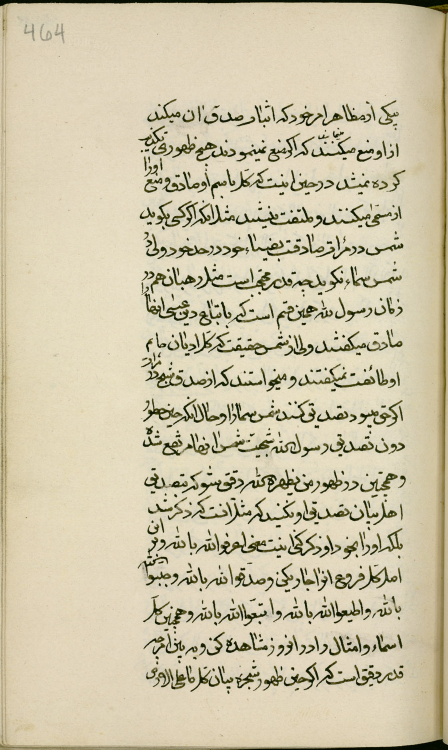 464
بیکی از مظاهر امر خود که اثبات صدق آن میکند
از او منع میکنند که اگر منع نمینمودند هیچ ظهوری تکذیب
کرده نمیشد در حین اینست که کل باسم او صادق و منع او را
از مسمی میکنند و ملتفت نمیشوند مثلا اینکه اگر کسی بگوید
شمس در مرآة صادقست بضیاء خود در حد خود ولی در
شمس سماء نگوید چه قدر محتجب است مثل رهبان هم در
زمان رسول الله همین قسم است که باتباع دین عیسی او را
صادق میگفتند ولی از شمس حقیقت که کل ادیان
او طائفند نمیگفتند و میخواستند که از صدق شبح در مرآت
اگر کسی میبود تصدیق کنند شمس سماء را و حال آنکه حین ظهور
دون تصدیق رسول الله شبحیت شمس آنها مرتفع شده
و همچنین در ظهور من یظهره الله دقیق شو که بتصدیق
اهل بیان تصدیق او نکنید که مثل آنست که ذکر شد
بلکه او را بخود او ذکر کن اینست معنی اعرفوا الله بالله و فرق
اصل کل فروع را جاری کن و صدقوا الله بالله و
بالله و اطیعوا الله بالله و اتبعوا الله بالله و همچنین کل
اسماء و امثال را در او مشاهده کن و ببین امر چه
قدر دقیق است که اگر حین ظهور شجره بیان کل ما علی الارض